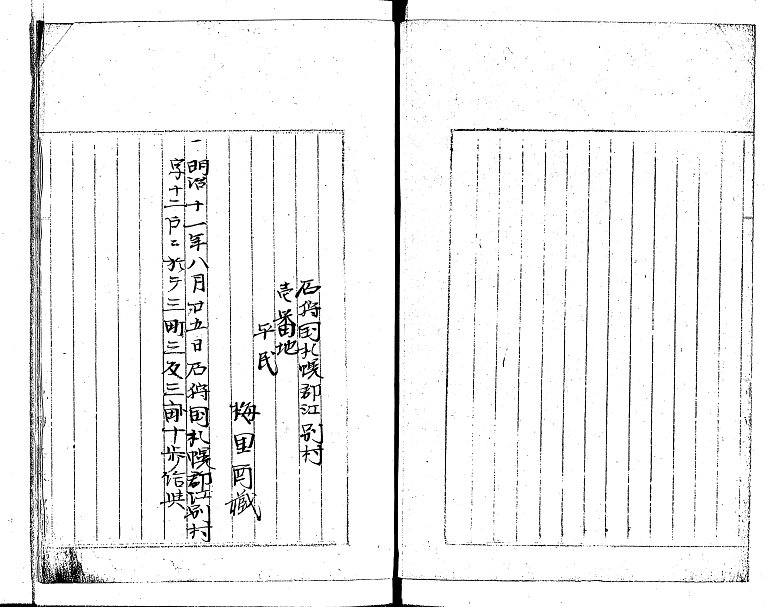 石狩国札幌郡江別村
壱番地
平民
梅里酉蔵
一明治十一年八月廿五日石狩国札幌郡江別村
字十二戸ニ於テ三町三反三畝十歩給与